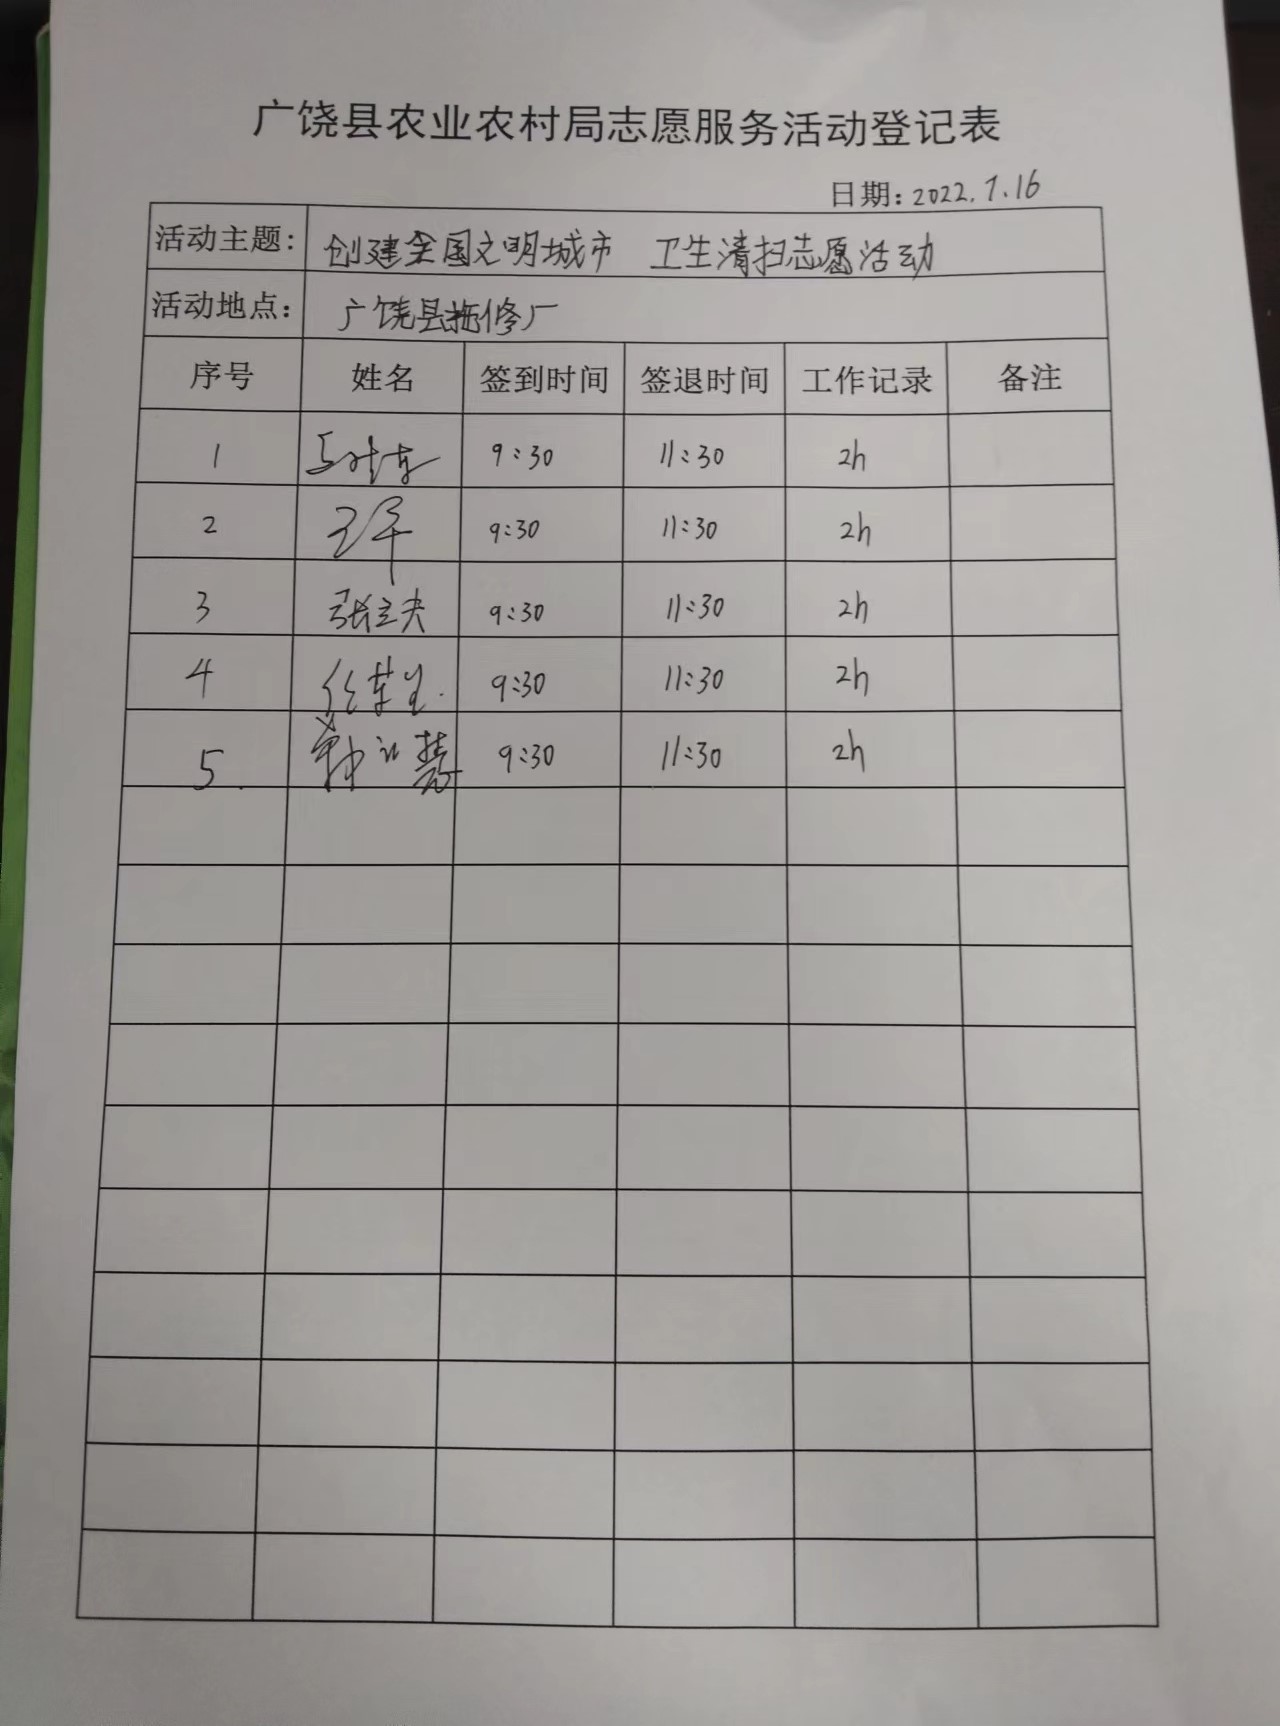 广饶县农业农村局志愿服务活动登记表
日期: 2022.7.16
活动主题: 创建全国文明城市 卫生清扫志愿活动
活动地点: 广饶县拖修厂
序号 姓名 签到时间 签退时间 工作记录 备注
1 9:30 11:30 2h
2 王军 9:30 11:30 2h
3 张立夫 9:30 11:30 2h
4 9:30 11:30 2h
5. 9:30 11:30 2h